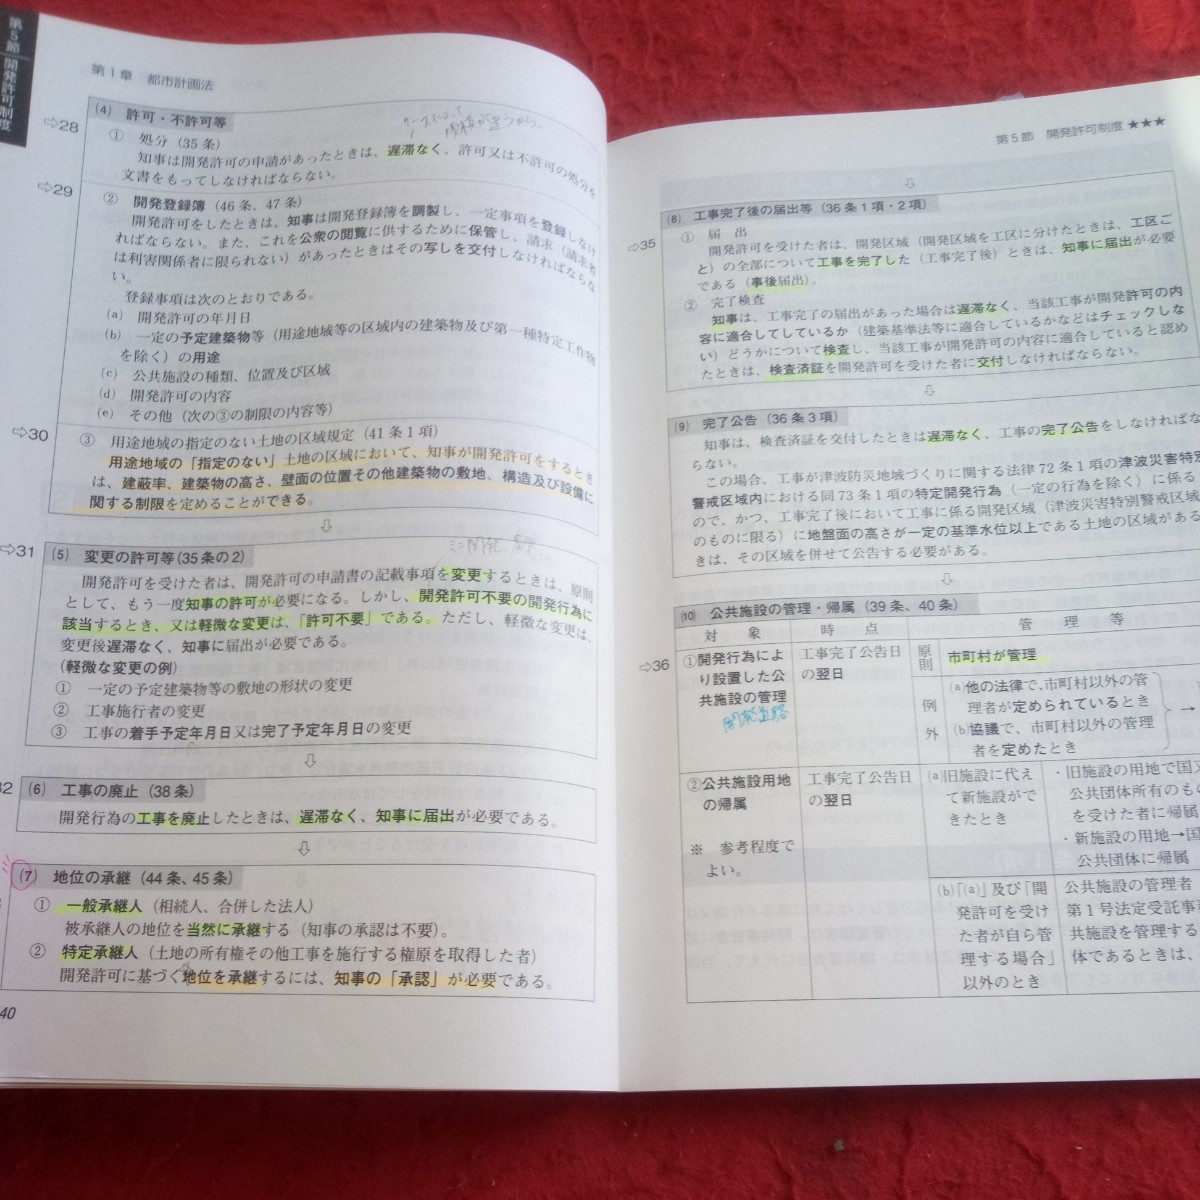 第5節 開発許可制度
第1章 都市計画法
⇨28
(4) 許可・不許可等
① 処分(35条)
知事は開発許可の申請があったときは、遅滞なく、許可又は不許可の処分を
文書をもってしなければならない。
⇨29
② 開発登録簿(46条、47条)
開発許可をしたときは、知事は開発登録簿を調製し、一定事項を登録しなけ
ればならない。また、これを公衆の閲覧に供するために保管し、請求(請求者
は利害関係者に限られない)があったときはその写しを交付しなければならな
い。
登録事項は次のとおりである。
(a) 開発許可の年月日
(b) 一定の予定建築物等(用途地域等の区域内の建築物及び第一種特定工作物
を除く)の用途
(c) 公共施設の種類、位置及び区域
(d) 開発許可の内容
(e) その他(次の③の制限の内容等)
⇨30
③ 用途地域の指定のない土地の区域規定(41条1項)
用途地域の「指定のない」土地の区域において、知事が開発許可をするとき
は、建蔽率、建築物の高さ、壁面の位置その他建築物の敷地、構造及び設備に
関する制限を定めることができる。
⇨31
(5) 変更の許可等(35条の2)
開発許可を受けた者は、開発許可の申請書の記載事項を変更するときは、原則
として、もう一度知事の許可が必要になる。しかし、開発許可不要の開発行為に
該当するとき、又は軽微な変更は、「許可不要」である。ただし、軽微な変更は、
変更後遅滞なく、知事に届出が必要である。
(軽微な変更の例)
① 一定の予定建築物等の敷地の形状の変更
② 工事施行者の変更
③ 工事の着手予定年月日又は完了予定年月日の変更
32
(6) 工事の廃止(38条)
開発行為の工事を廃止したときは、遅滞なく、知事に届出が必要である。
(7) 地位の承継(44条、45条)
① 一般承継人(相続人、合併した法人)
被承継人の地位を当然に承継する(知事の承認は不要)。
② 特定承継人(土地の所有権その他工事を施行する権原を取得した者)
開発許可に基づく地位を承継するには、知事の「承認」が必要である。
40
第5節 開発許可制度 ★★★
⇨35
(8) 工事完了後の届出等(36条1項・2項)
① 届 出
開発許可を受けた者は、開発区域(開発区域を工区に分けたときは、工区ご
と)の全部について工事を完了した(工事完了後)ときは、知事に届出が必要
である(事後届出)。
② 完了検査
知事は、工事完了の届出があった場合は遅滞なく、当該工事が開発許可の内
容に適合してしているか(建築基準法等に適合しているかなどはチェックしな
い)どうかについて検査し、当該工事が開発許可の内容に適合していると認め
たときは、検査済証を開発許可を受けた者に交付しなければならない。
(9) 完了公告(36条3項)
知事は、検査済証を交付したときは遅滞なく、工事の完了公告をしなければな
らない。
この場合、工事が津波防災地域づくりに関する法律72条1項の津波災害特別
警戒区域内における同73条1項の特定開発行為(一定の行為を除く)に係る
ので、かつ、工事完了後において工事に係る開発区域(津波災害特別警戒区域
のものに限る)に地盤面の高さが一定の基準水位以上である土地の区域がある
きは、その区域を併せて公告する必要がある。
⇨36
(10) 公共施設の管理・帰属(39条、40条)
対 象 時 点 管 理 等
①開発行為によ
り設置した公
共施設の管理
開発道路
工事完了公告日
の翌日
原則 市町村が管理
例外
(a)他の法律で、市町村以外の管
理者が定められているとき
(b)協議で、市町村以外の管理
者を定めたとき
→
②公共施設用地
の帰属
※ 参考程度で
よい。
工事完了公告日
の翌日
(a)旧施設に代え
て新施設がで
きたとき
・旧施設の用地で国又
公共団体所有のもの
を受けた者に帰属
・新施設の用地→国
公共団体に帰属
(b)「(a)」及び「開
発許可を受け
た者が自ら管
理する場合」
以外のとき
公共施設の管理者
第1号法定受託事務
共施設を管理する
体であるときは、